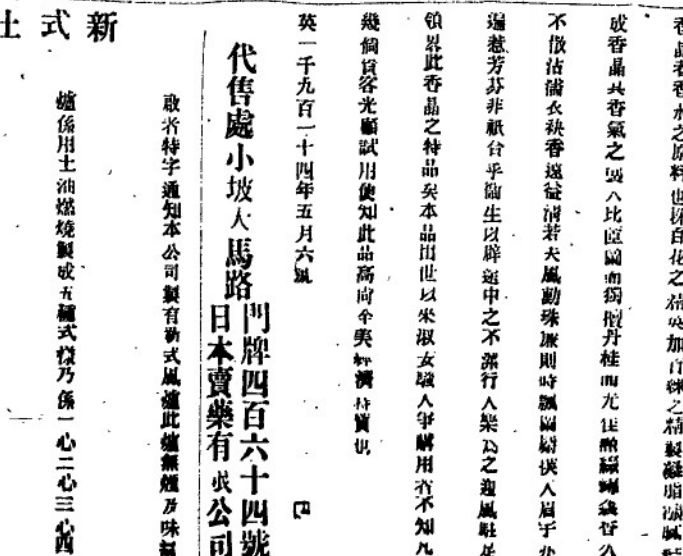 香晶者香水之原料也採百花之精英加百鍊之精製凝脂
成香晶其香氣之 人比 蘭而獨 丹桂而尤佳
不散沾 衣袂香遠益清若夫風動珠簾則時飄 撲人眉宇
遍惹芳芬非祇合乎衞生以辟途中之不潔行人樂為之迎風駐足
領畧此香晶之特品矣本品出世以來淑女 人爭購用者不知凡
幾倘貴客光顧試用便知此品高尚全美經濟
英一千九百一十四年五月六號
代售處小坡大馬路
門牌四百六十四號
日本賣藥有 公司
啟者特字通知本公司製有新式風爐此爐無烟及味
爐係用土油燃燒製成五種式樣乃係一心二心三心四
新式土